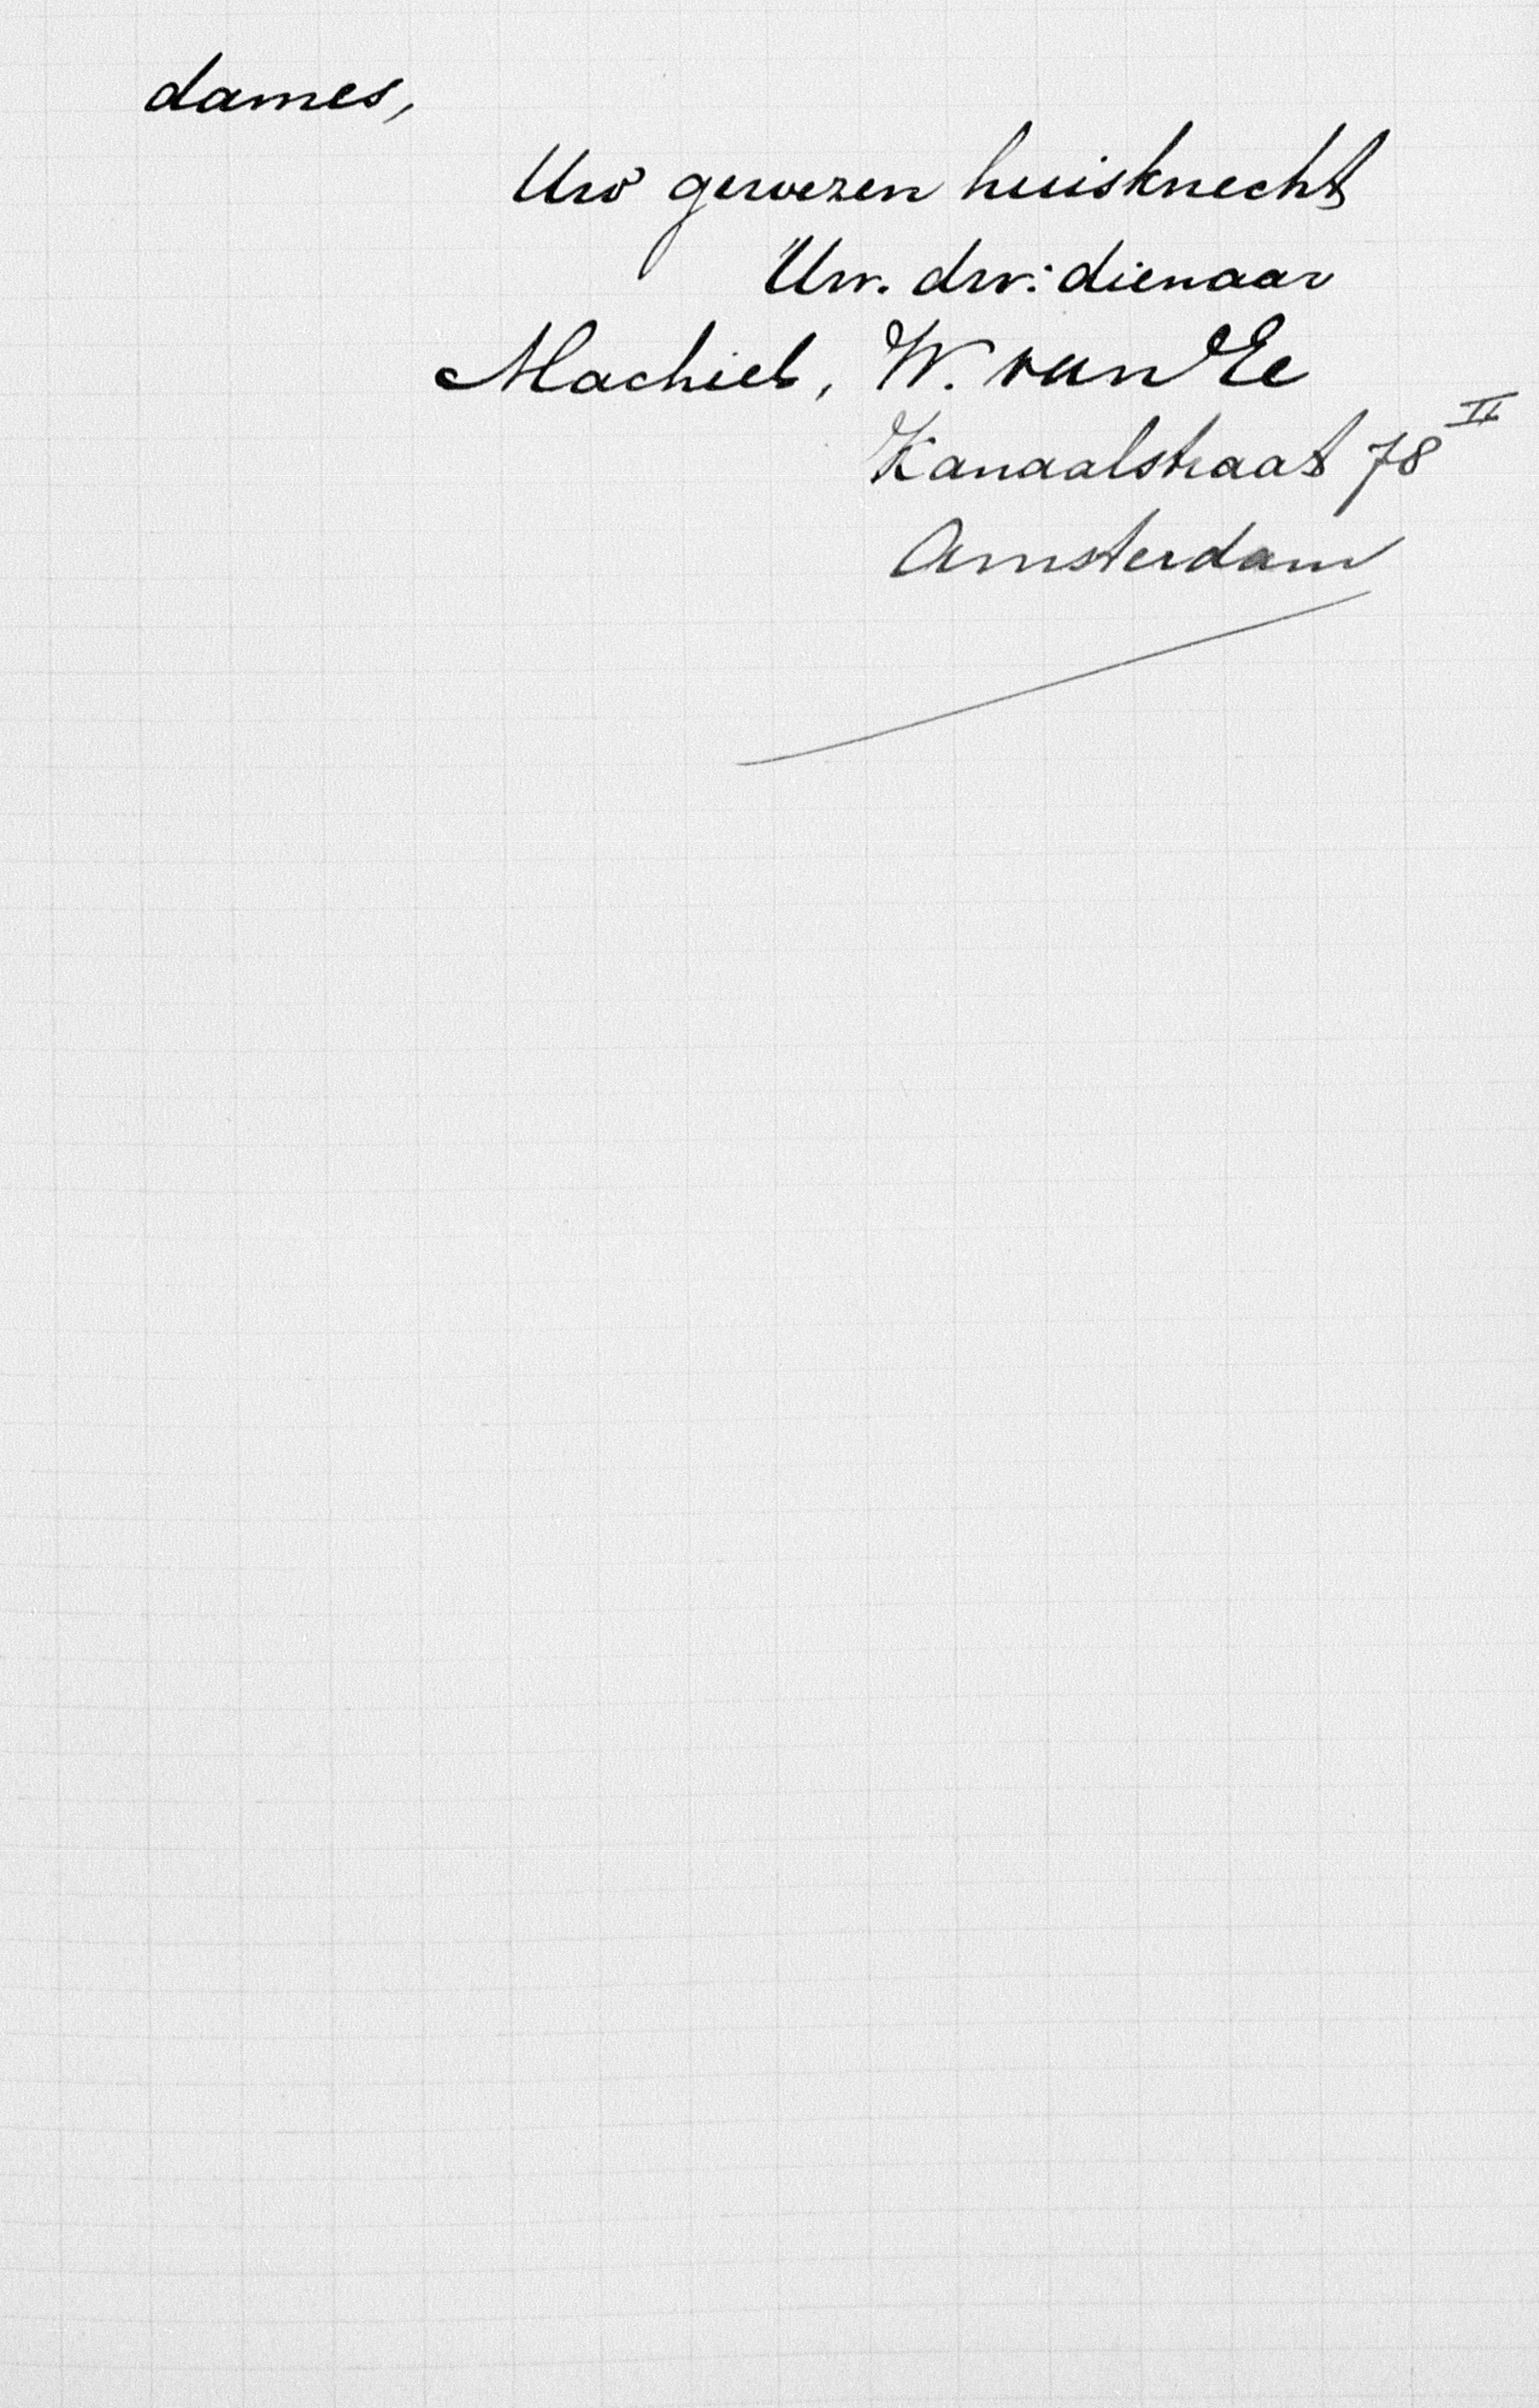 dames,
Uw gewezen huisknecht
Uw. dw: dienaar
Machiel, W. van Ee
Kanaalstraat 78 II
Amsterdam